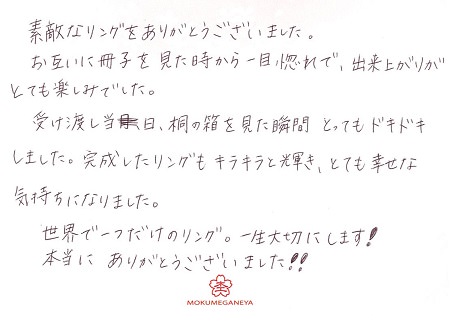 素敵なリングをありがとうございました。
お互いに冊子を見た時から一目惚れで、出来上がりが
とても楽しみでした。
受け渡し当日、桐の箱を見た瞬間 とってもドキドキ
しました。完成したリングも キラキラと輝き、とても幸せな
気持ちになりました。
世界で一つだけのリング。一生大切にします!
本当に ありがとうございました!!
MOKUMEGANEYA